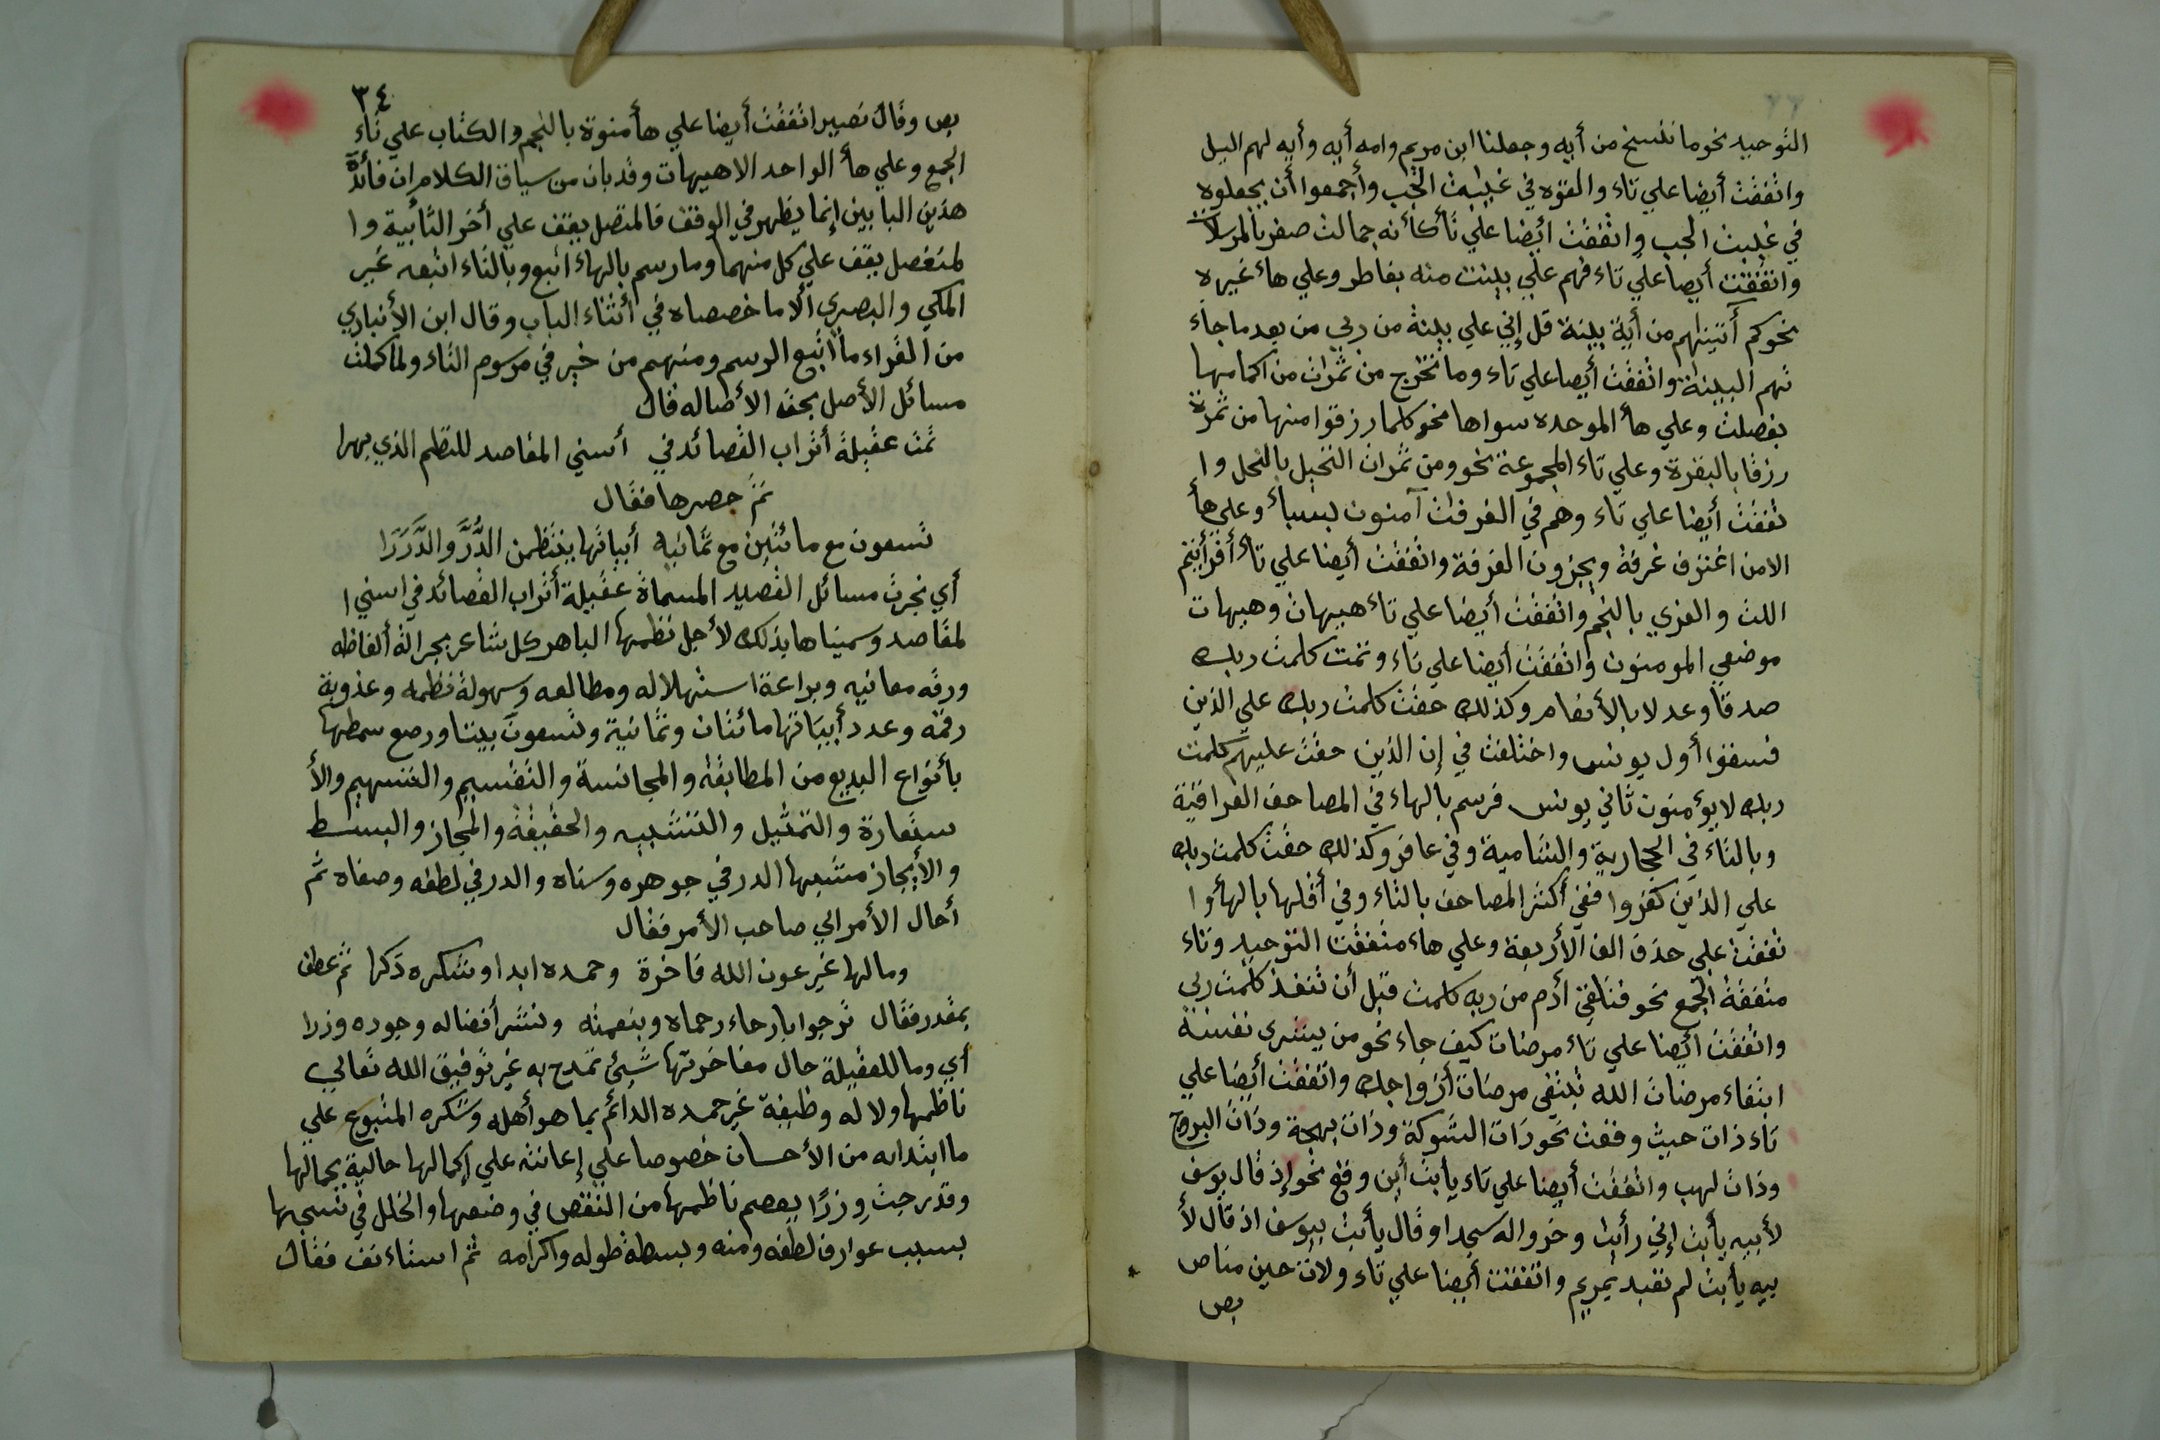 التوحيد نحو ما ننسخ من أيه وجعلنا ابن مريم وامه أيه وأيه لهم اليل
واتفقت أيضا علي تاء والقوه في غيبت الجب وأجمعوا أن يجعلوه
في غيبت الجب واتفقت أيضا علي تأ كأنه جمالت صفر بالمرسلات
واتفقت أيضا علي تاء فهم علي بينت منه بفاطر وعلي هاء غيره
نحو كم أتيناهم من أية بينة قل إني علي بينة من ربي من بعد ما جاء
تهم البينة واتفقت أيضا علي تاء وما تخرج من ثمرات من اكمامها
بفصلت وعلي هأ الموحده سواها نحو كلما رزقوا منها من ثمرة
رزقا بالبقرة وعلي تاء المجموعة نحو ومن ثمرات النخيل بالنحل وا
تفقت أيضا علي تاء وهم في الغرفت آمنون بسبأ وعلي هأ
الامن اغترف غرفة ويجزون الغرفة واتفقت أيضا علي تاء أفرأيتم
اللت والعزي بالنجم واتفقت أيضا علي تاء هيهات وهيهات
موضعي المومنون واتفقت أيضا علي تاء وتمت كلمت ربك
صدقا وعدلا بالأنعام وكذلك حقت كلمت ربك علي الذين
فسقوا أول يونس واختلفت في إن الذين حقت عليهم كلمت
ربك لايؤمنون ثاني يونس فرسم بالهاء في المصاحف العراقية
وبالتاء في الحجازية والشامية وفي غافر وكذلك حقت كلمت ربك
علي الذين كفروا ففي أكثر المصاحف بالتاء وفي أقلها بالهاء وا
تفقت علي حذف الف الأربعة وعلي هاء متفقت التوحيد وتاء
متفقة الجمع نحو فتلقي أدم من ربه كلمت قبل أن تنفد كلمت ربي
واتفقت أيضا علي تاء مرضات كيف جاء نحو من يشري نفسه
ابتغاء مرضات الله تبتغي مرضات أزواجك واتفقت أيضا علي
تاء ذات حيث وقفت نحو ذات الشوكة وذات بهجة وذات البروج
وذات لهب واتفقت أيضا علي تاء يأبت أين وقع نحو إذ قال يوسف
لأبيه يأبت إني رأيت وخروا له سجدا وقال يأبت بيوسف اذ قال لأ
بيه يأبت لم تعبد بمريم واتفقت أيضا علي تاء ولات حين مناص
بص
٣٤
بص وقال نصير اتفقت أيضا علي هأ منوة بالنجم والكتاب علي تاء
الجمع وعلي هأ الواحد الاهيهات وقد بان من سياق الكلام ان فائدة
هذين البابين إنما يظهر في الوقف فالمتصل يقف علي أخر الثانية وا
لمنفصل يقف علي كل منهما وما رسم بالهاء اتبع وبالتاء اتبعه غير
المكي والبصري ألا ما خصصاه في أثناء الباب وقال ابن الأنباري
من القراء ما أتبع الرسم ومنهم من خير في مرسوم التاء ولما كملت
مسائل الأصل بحق الأصاله قال
تمت عقيلة أتراب القصائد في أسني المقاصد للنظم الذي بهرا
ثم حصرها فقال
تسعون مع مائتين مع ثمانية أبياتها ينتظمن الدُّرَّ والدَّرَرَا
أي نجزت مسائل القصيد المسماة عقيلة أتراب القصائد في اسني ا
لمقاصد وسميناها بذلك لأجل نظمها الباهر كل شاعر بجزالة ألفاظه
ورقه معانيه وبراعة استهلاله ومطالعه وسهولة نظمه وعذوبة
رقته وعدد أبياتها مائتان وثمانية وتسعون بيتا ورصع سمطها
بأنواع البديع من المطابقة والمجانسة والتقسيم والتسهيم والأ
ستعارة والتمثيل والتشبيه والحقيقة والمجاز والبسط
والأيجاز مشبها الدر في جوهره وسناه والدر في لطفه وصفاه ثم
أحال الأمر الي صاحب الأمر فقال
ومالها غير عون الله فاخرة وحمده ابدا وشكره ذكرا ثم عطف
بمقدر فقال ترجوا بارجاء رحماه وبنعمته ونشر أفضاله وجوده وزرا
أي وما للعقيلة حال مفاخرتها شيئ تمدح به غير توفيق الله تعالي
ناظمها ولا له وظيفة غير حمده الدائم بما هو أهله وشكره المتبوع علي
ما ابتدا به من الأحسان خصوصا علي إعانته علي إكمالها حالية بجمالها
وقد رجت وزرًا يعصم ناظمها من النقص في وضعها والخلل في نسجها
بسبب عوارف لطفه ومنه وبسطة طوله واكرامه ثم استاءنف فقال